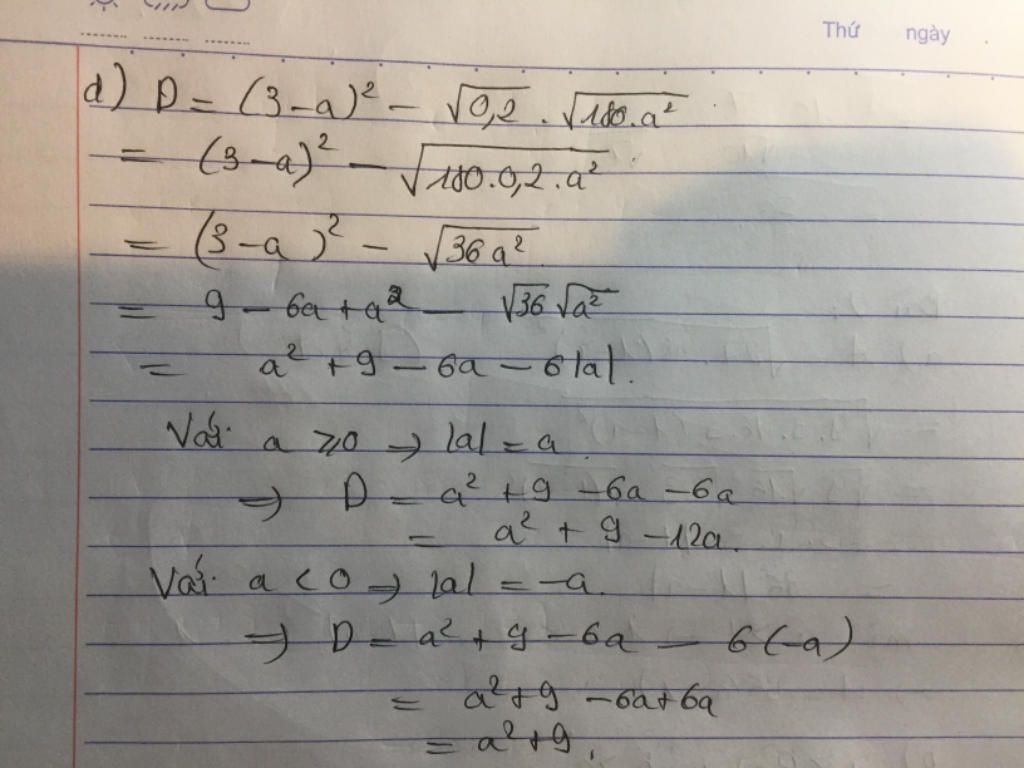 Thứ ngày
d) D = (3-a)² - √0,2 . √180.a²
= (3-a)² - √180.0,2.a²
= (3-a)² - √36a²
= 9 - 6a + a² - √36 √a²
= a² + 9 - 6a - 6|a|.
Với a ⩾ 0 → |a| = a.
⇒ D = a² + 9 - 6a - 6a
= a² + 9 - 12a.
Với a < 0 → |a| = -a.
⇒ D = a² + 9 - 6a - 6(-a)
= a² + 9 - 6a + 6a
= a² + 9.